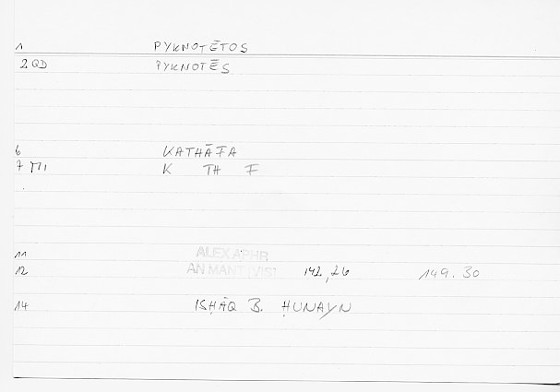 1 PYKNOTĒTOS
2 QD PYKNOTĒS
6 KATHĀFA
7 MI K TH F
11 ALEX APHR
12 AN MANT (VIS). 142,26 149.30
14 ISḤĀQ B. ḤUNAYN